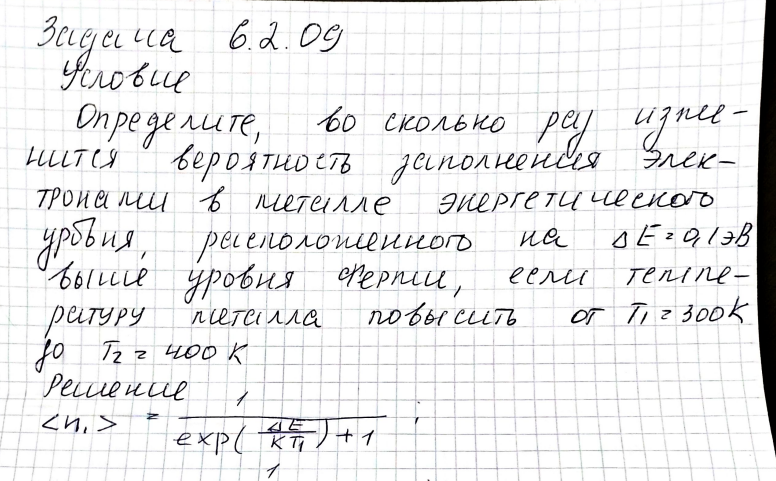 Задача 6.2.09
Условие
Определите, во сколько раз изме-
нится вероятность заполнения элек-
тронами в металле энергетического
уровня, расположенного на ΔE=0,1эВ
выше уровня Ферми, если темпе-
ратуру металла повысить от T₁=300К
до T₂=400К
Решение
<n₁> = 1/(exp(ΔE/KT₁)+1) ;
1